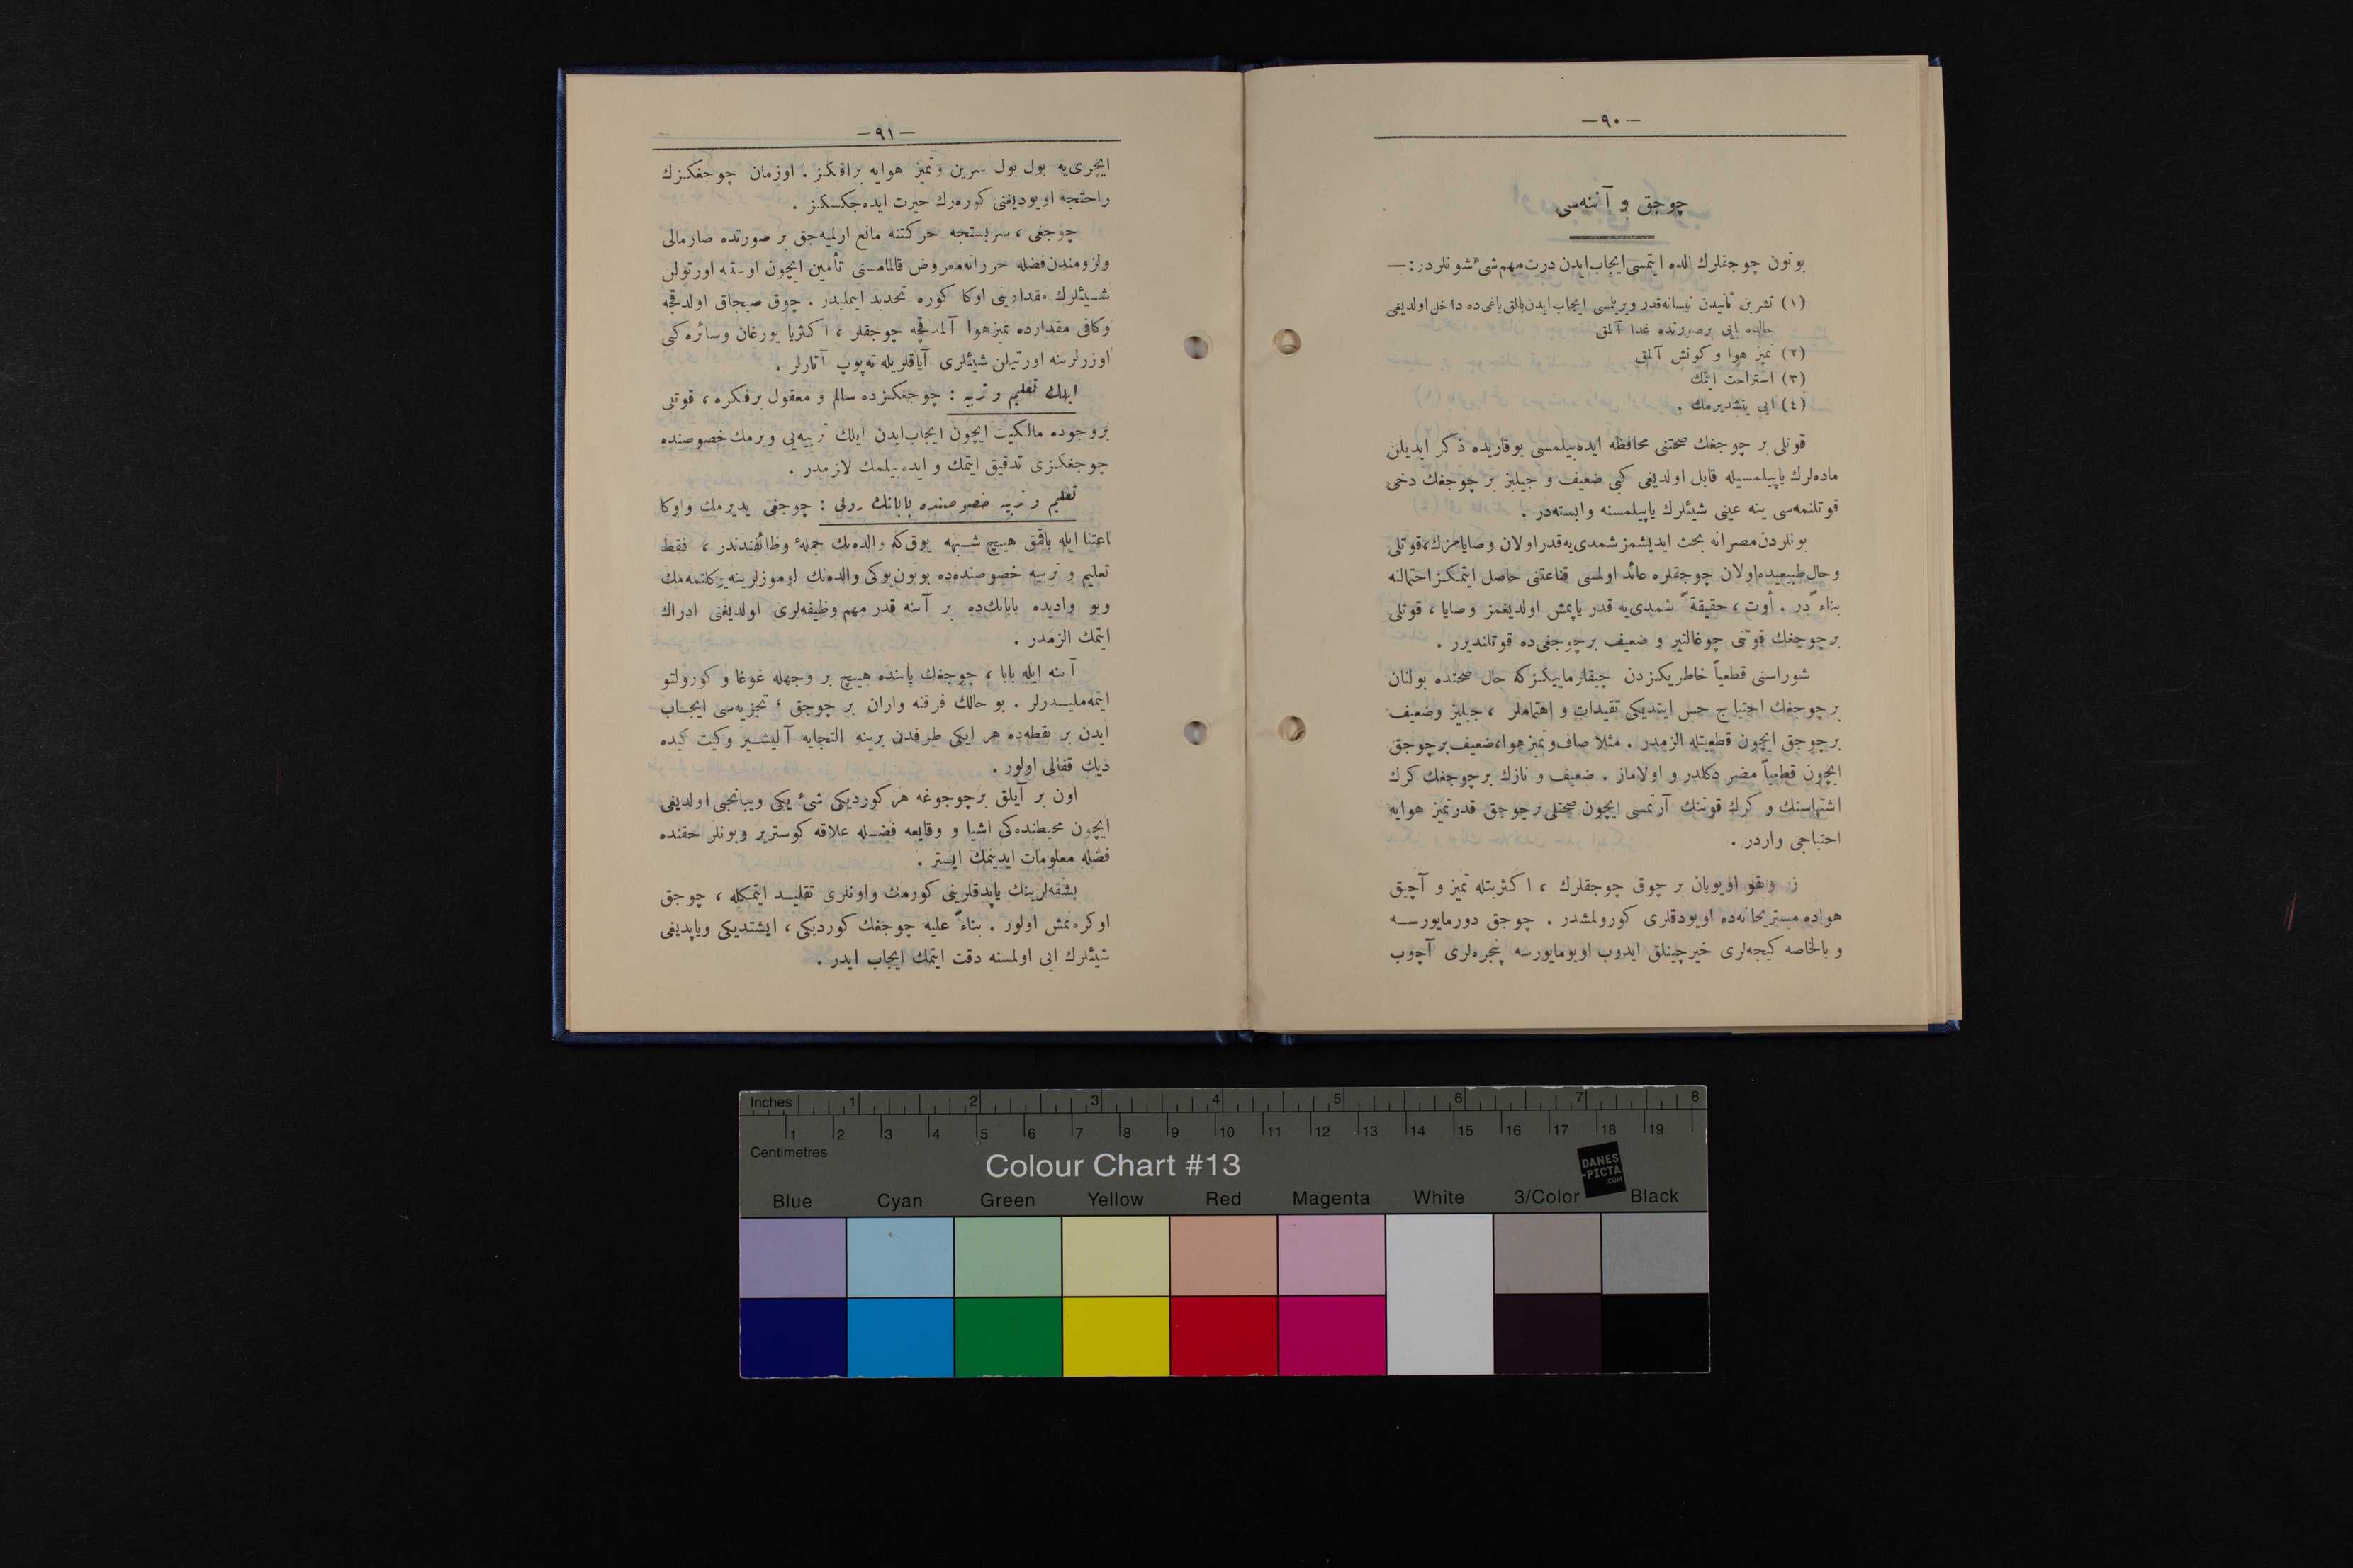 —٩٠—
چوجق و آننه‌سی
بوتون چوجقلرك الده ایتمسی ایجاب ایدن درت مهم شیٔ شونلردر : —
(١) تشرین ثانیدن نیسانه قدر ویریلمسی ایجاب ایدن بالق یاغی ده داخل اولدیغی
حالده ایی برصورتده غدا آلمق
(٢) تمیز هوا و كونش آلمق
(٣) استراحت ایتمك
(٤) ایی یتشدیرمك .
قوتلی بر چوجغك صحتنی محافظه ایده‌بیلمسی یوقاریده ذكر ایدیلن
ماده‌لرك یاپیلمسیله قابل اولدیغی كبی ضعیف و جیلیز بر چوجغك دخی
قوتلنمه‌سی ینه عینی شیئلرك یاپیلمسنه وابسته‌در .
بونلردن مصرانه بحث ایدیشمز شمدی‌یه قدر اولان وصایامزك، قوتلی
وحال طبیعیده اولان چوجقلره عائد اولمسی قناعتنی حاصل ایتمكز احتمالنه
بناءً در . أوت ، حقیقةً شمدی‌یه قدر یاپمش اولدیغمز وصایا ، قوتلی
بر چوجغك قوتنی چوغالتیر و ضعیف برچوجغی ده قوتلندیرر .
شوراسنی قطعیاً خاطریكزدن چیقارماییكزكه حال صحتده بولنان
بر چوجغك احتیاج حس ایتدیكی تقیدات و اهتماملر ، جیلیز وضعیف
برچوجق ایچون قطعیتله الزمدر . مثلا صاف وتمیز هوا، ضعیف برچوجق
ایچون قطعیاً مضر دكلدر و اولاماز . ضعیف و نازك برچوجغك كرك
اشتهاسنك و كرك قوتنك آرتمسی ایچون صحتلی برچوجق قدر تمیز هوایه
احتیاجی واردر .
اویویان بر چوق چوجقلرك ، اكثریتله تمیز و آچیق
هواده مستریحانه‌ده اویودقلری كورولمشدر . چوجق دورمایورسه
و بالخاصه كیجه‌لری خیرچینلق ایدوب اویومایورسه پنجره‌لری آچوب
—٩١—
ایچری‌یه بول بول سرین وتمیز هوایه براقیكز . اوزمان چوجغكزك
راحتجه اویودیغنی كوره‌رك حیرت ایده‌جكسكز .
چوجغی ، سربستجه حركتنه مانع اولمیه‌جق بر صورتده صارمالی
ولزومندن فضله حرراته معروض قالمامسنی تأمین ایچون اوسته اورتولن
شیئلرك مقدارینی اوكا كوره تحدید ایتملیدر . چوق صیجاق اولدقجه
وكافی مقدارده تمیز هوا آلمدقجه چوجقلر ، اكثریا یورغان وسائره كبی
اوزرلرینه اورتیلن شیئلری آیاقلریله ته‌پوب آتارلر .
ایلك تعلیم و تربیه : چوجغكزده سالم و معقول برفكره ، قوتلی
بروجوده مالكیت ایچون ایجاب ایدن ایلك تربیه‌یی ویرمك خصوصنده
چوجغكزی تدقیق ایتمك و ایده‌بیلمك لازمدر .
تعلیم و تربیه خصوصنده بابانك رولی : چوجغی یدیرمك واوكا
اعتنا ایله باقمق هیچ شبهه یوق‌كه والده‌نك جمله‌ٔ وظائفندندر ، فقط
تعلیم و تربیه خصوصنده‌ده بوتون یوكی والده‌نك اوموزلرینه یوكلتمه‌مك
وبو وادیده بابانك‌ده بر آننه قدر مهم وظیفه‌لری اولدیغنی ادراك
ایتمك الزمدر .
آننه ایله بابا ، چوجغك یاننده هیچ بر وجهله غوغا و كورولتو
ایتمه‌ملیدرلر . بو حالك فرقنه واران بر چوجق ، تجزیه‌سی ایجاب
ایدن بر نقطه‌ده هر ایكی طرفدن برینه التجایه آلیشیر وكیت كیده
دیك قفالی اولور .
اون بر آیلق برچوجوغه هر كوردیكی شیٔ یكی ویبانجی اولدیغی
ایچون محیطنده‌كی اشیا و وقایعه فضله علاقه كوستریر وبونلر حقنده
فضله معلومات ایدینمك ایستر .
بشقه‌لرینك یاپدقلرینی كورمك واونلری تقلید ایتمكله ، چوجق
اوكره‌نمش اولور . بناءً علیه چوجغك كوردیكی ، ایشتدیكی ویاپدیغی
شیئلرك ایی اولمسنه دقت ایتمك ایجاب ایدر .
Inches 1 2 3 4 5 6 7 8
1 2 3 4 5 6 7 8 9 10 11 12 13 14 15 16 17 18 19
Centimetres
Colour Chart #13
DANES
-PICTA
.COM
Blue Cyan Green Yellow Red Magenta White 3/Color Black